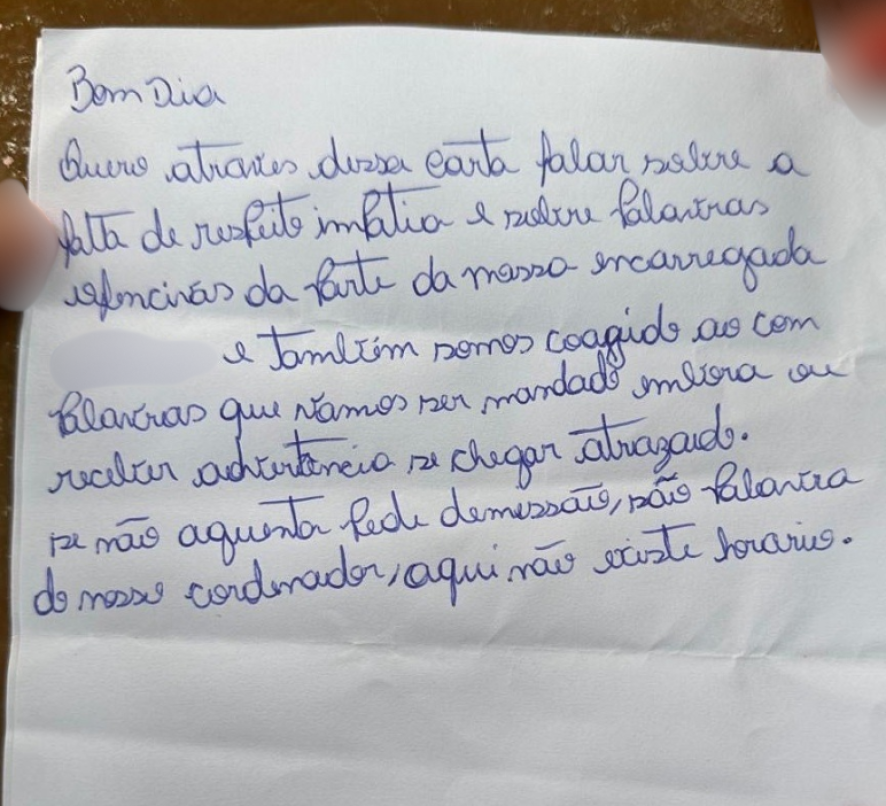 Bom Dia
Quero atraves dessa carta falar sobre a
falta de respeito impatia e sobre palavras
ofencivas da parte da nossa encarregada
e também somos coagido ao com
palavras que vamos ser mandado embora ou
receber advertencia se chegar atrazado.
se não aquenta pede demissão, são palavra
do nosso cordenador, aqui não existe horario.